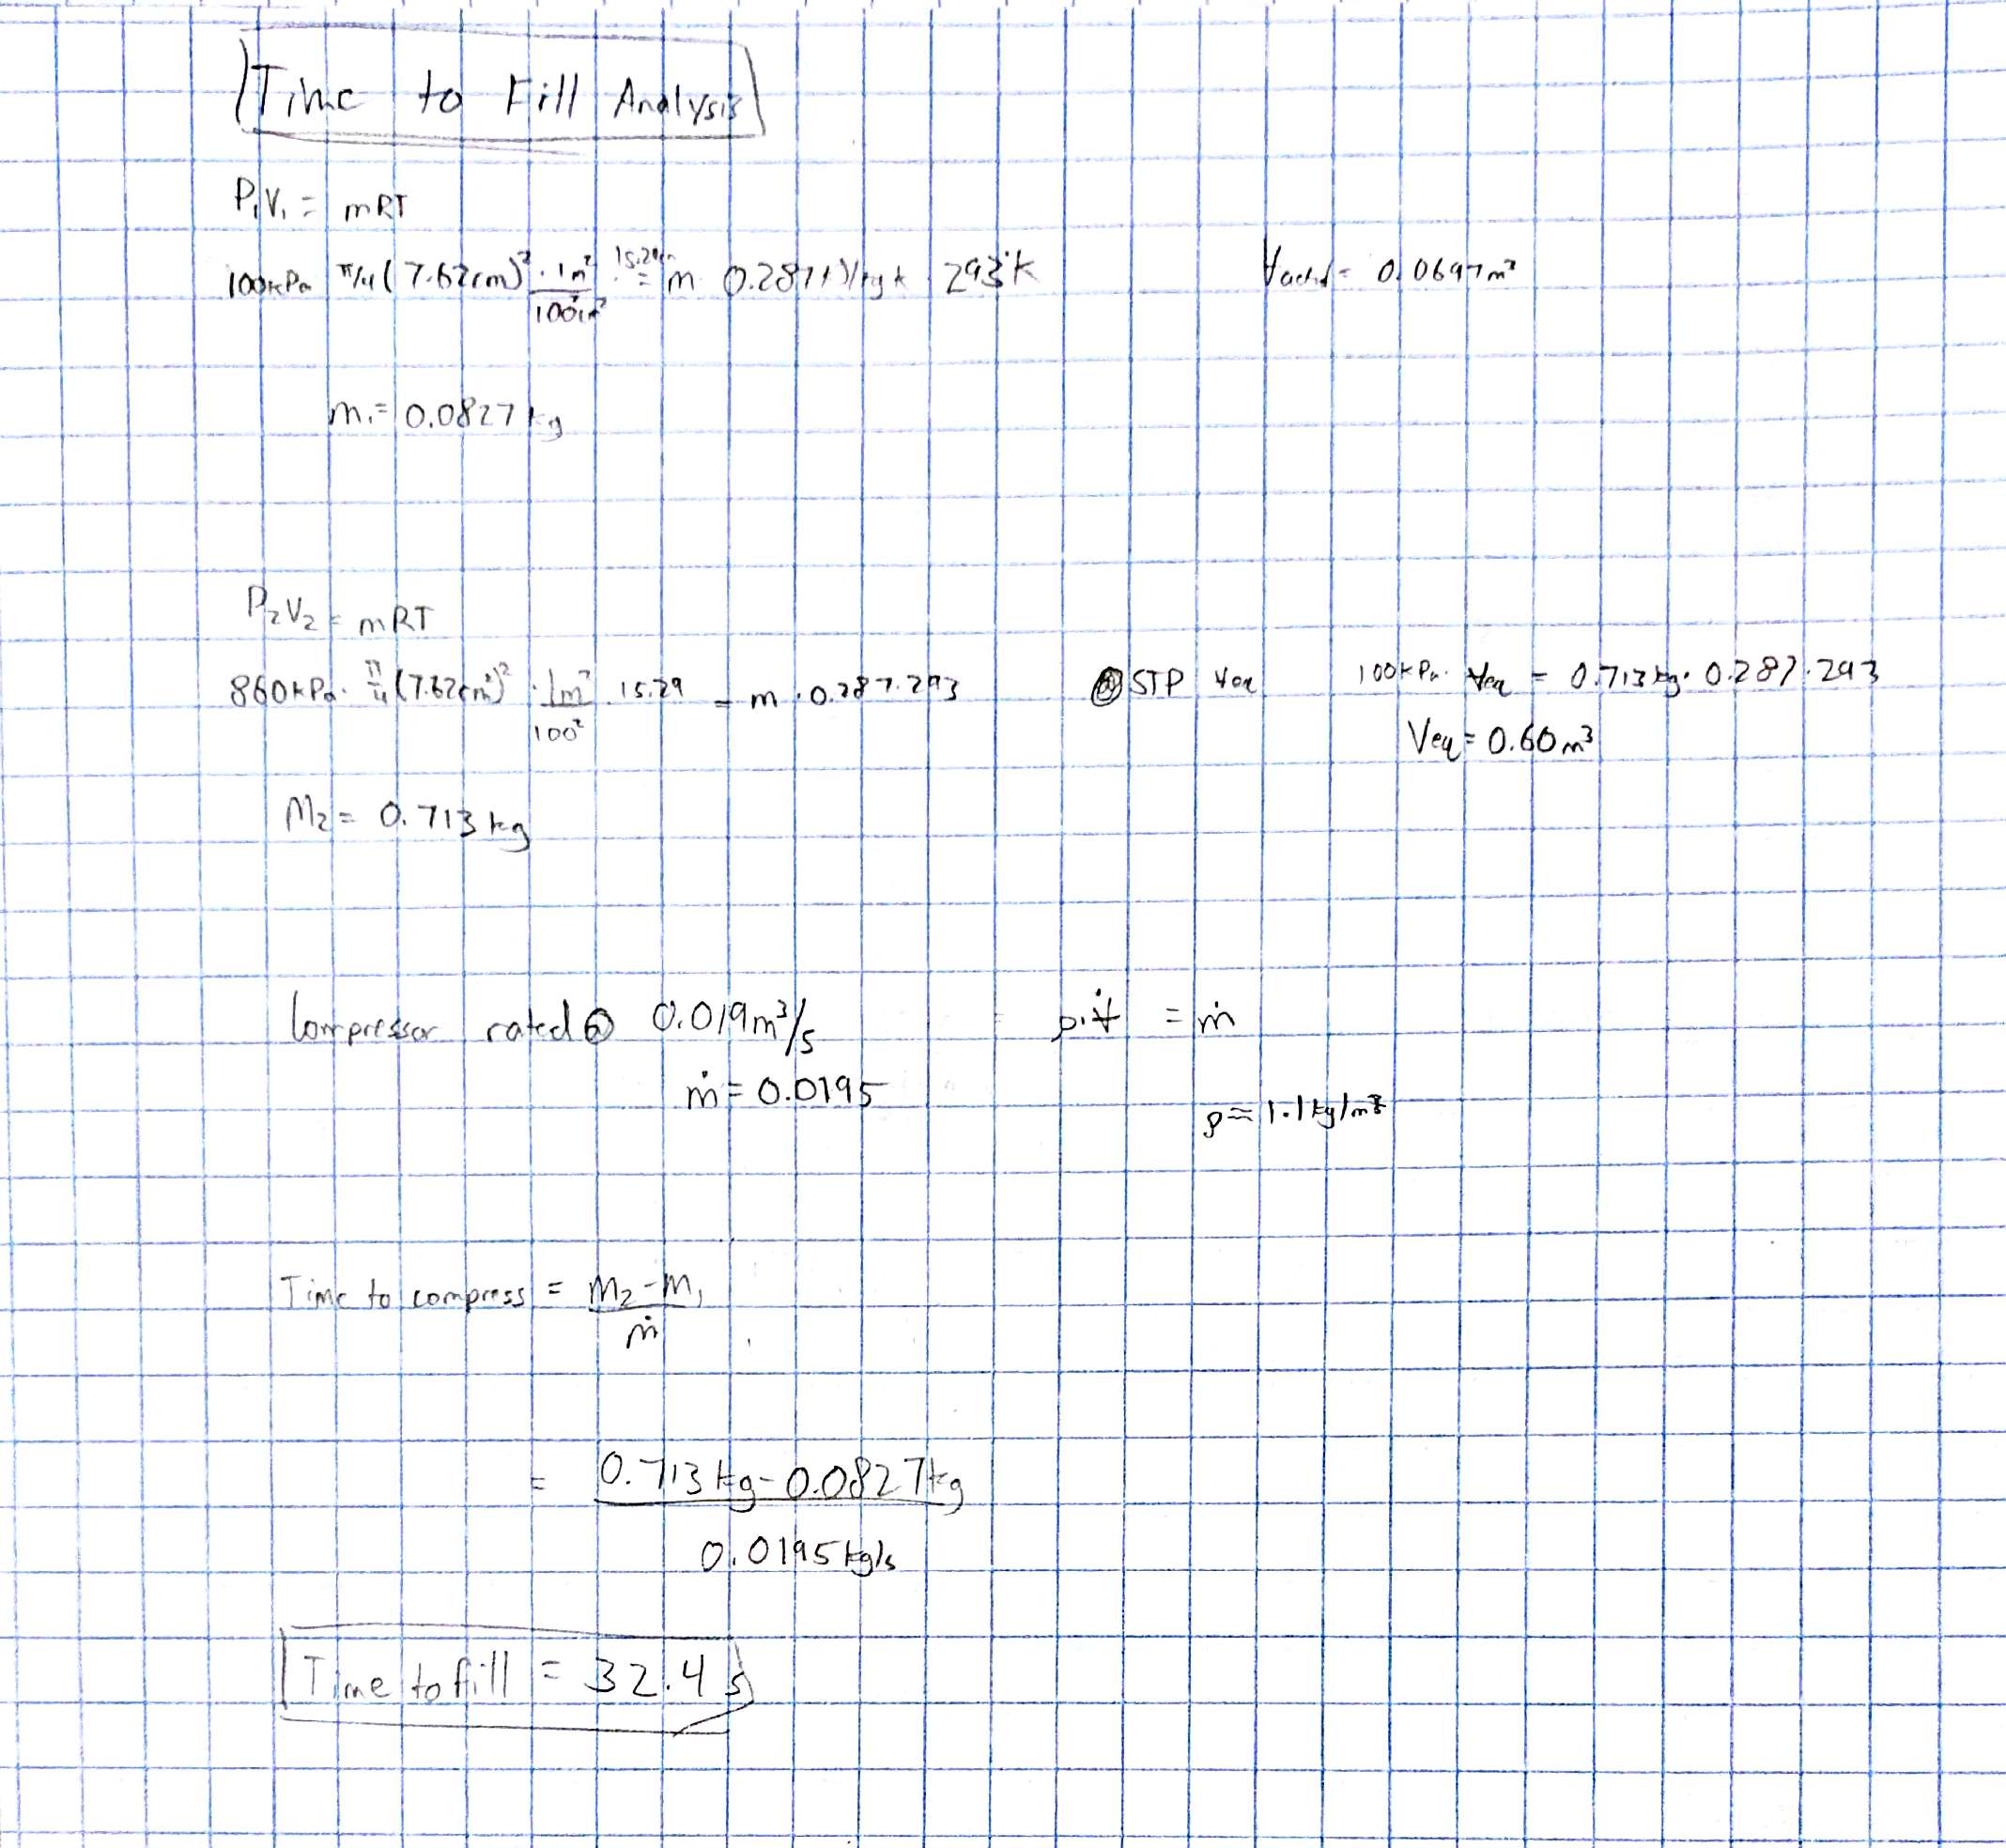 Time to Fill Analysis
P₁V₁ = mRT
100kPa π/4 (7.62cm)² · 1m²/100²cm² · 15.29m = m 0.287kJ/kgk 293°K
V = 0.0697m³
m₁ = 0.0827kg
P₂V₂ = mRT
860kPa · π/4 (7.62cm²)² · 1m²/100² · 15.29 = m · 0.287 · 293
@STP Veq 100kPa · Veq = 0.713kg · 0.287 · 293
Veq = 0.60m³
M₂ = 0.713kg
Compressor rated @ 0.019m³/s
ρ · V̇ = ṁ
ṁ = 0.0195
ρ ≈ 1.1kg/m³
Time to compress = M₂-M₁/ṁ
= 0.713kg - 0.0827kg/0.0195kg/s
Time to fill = 32.4s